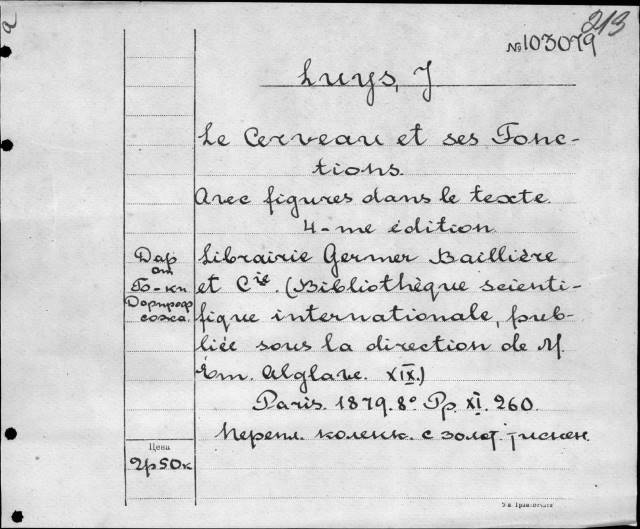 213
№103079
Luys, J
Le Cerveau et ses Fonc-
tions.
Avec figures dans le texte.
4-me édition
Librairie Germer Baillière
et Cie. (Bibliothèque scienti-
fique internationale, pub-
liée sous la direction de M.
Em. Alglave. XIX.)
Paris. 1879. 8° Pp. XI. 260.
Перепл. коленк. с золот. тиснен.
Дар
от
Б-ки
Дорпроф
сожа.
Цена
2р50к